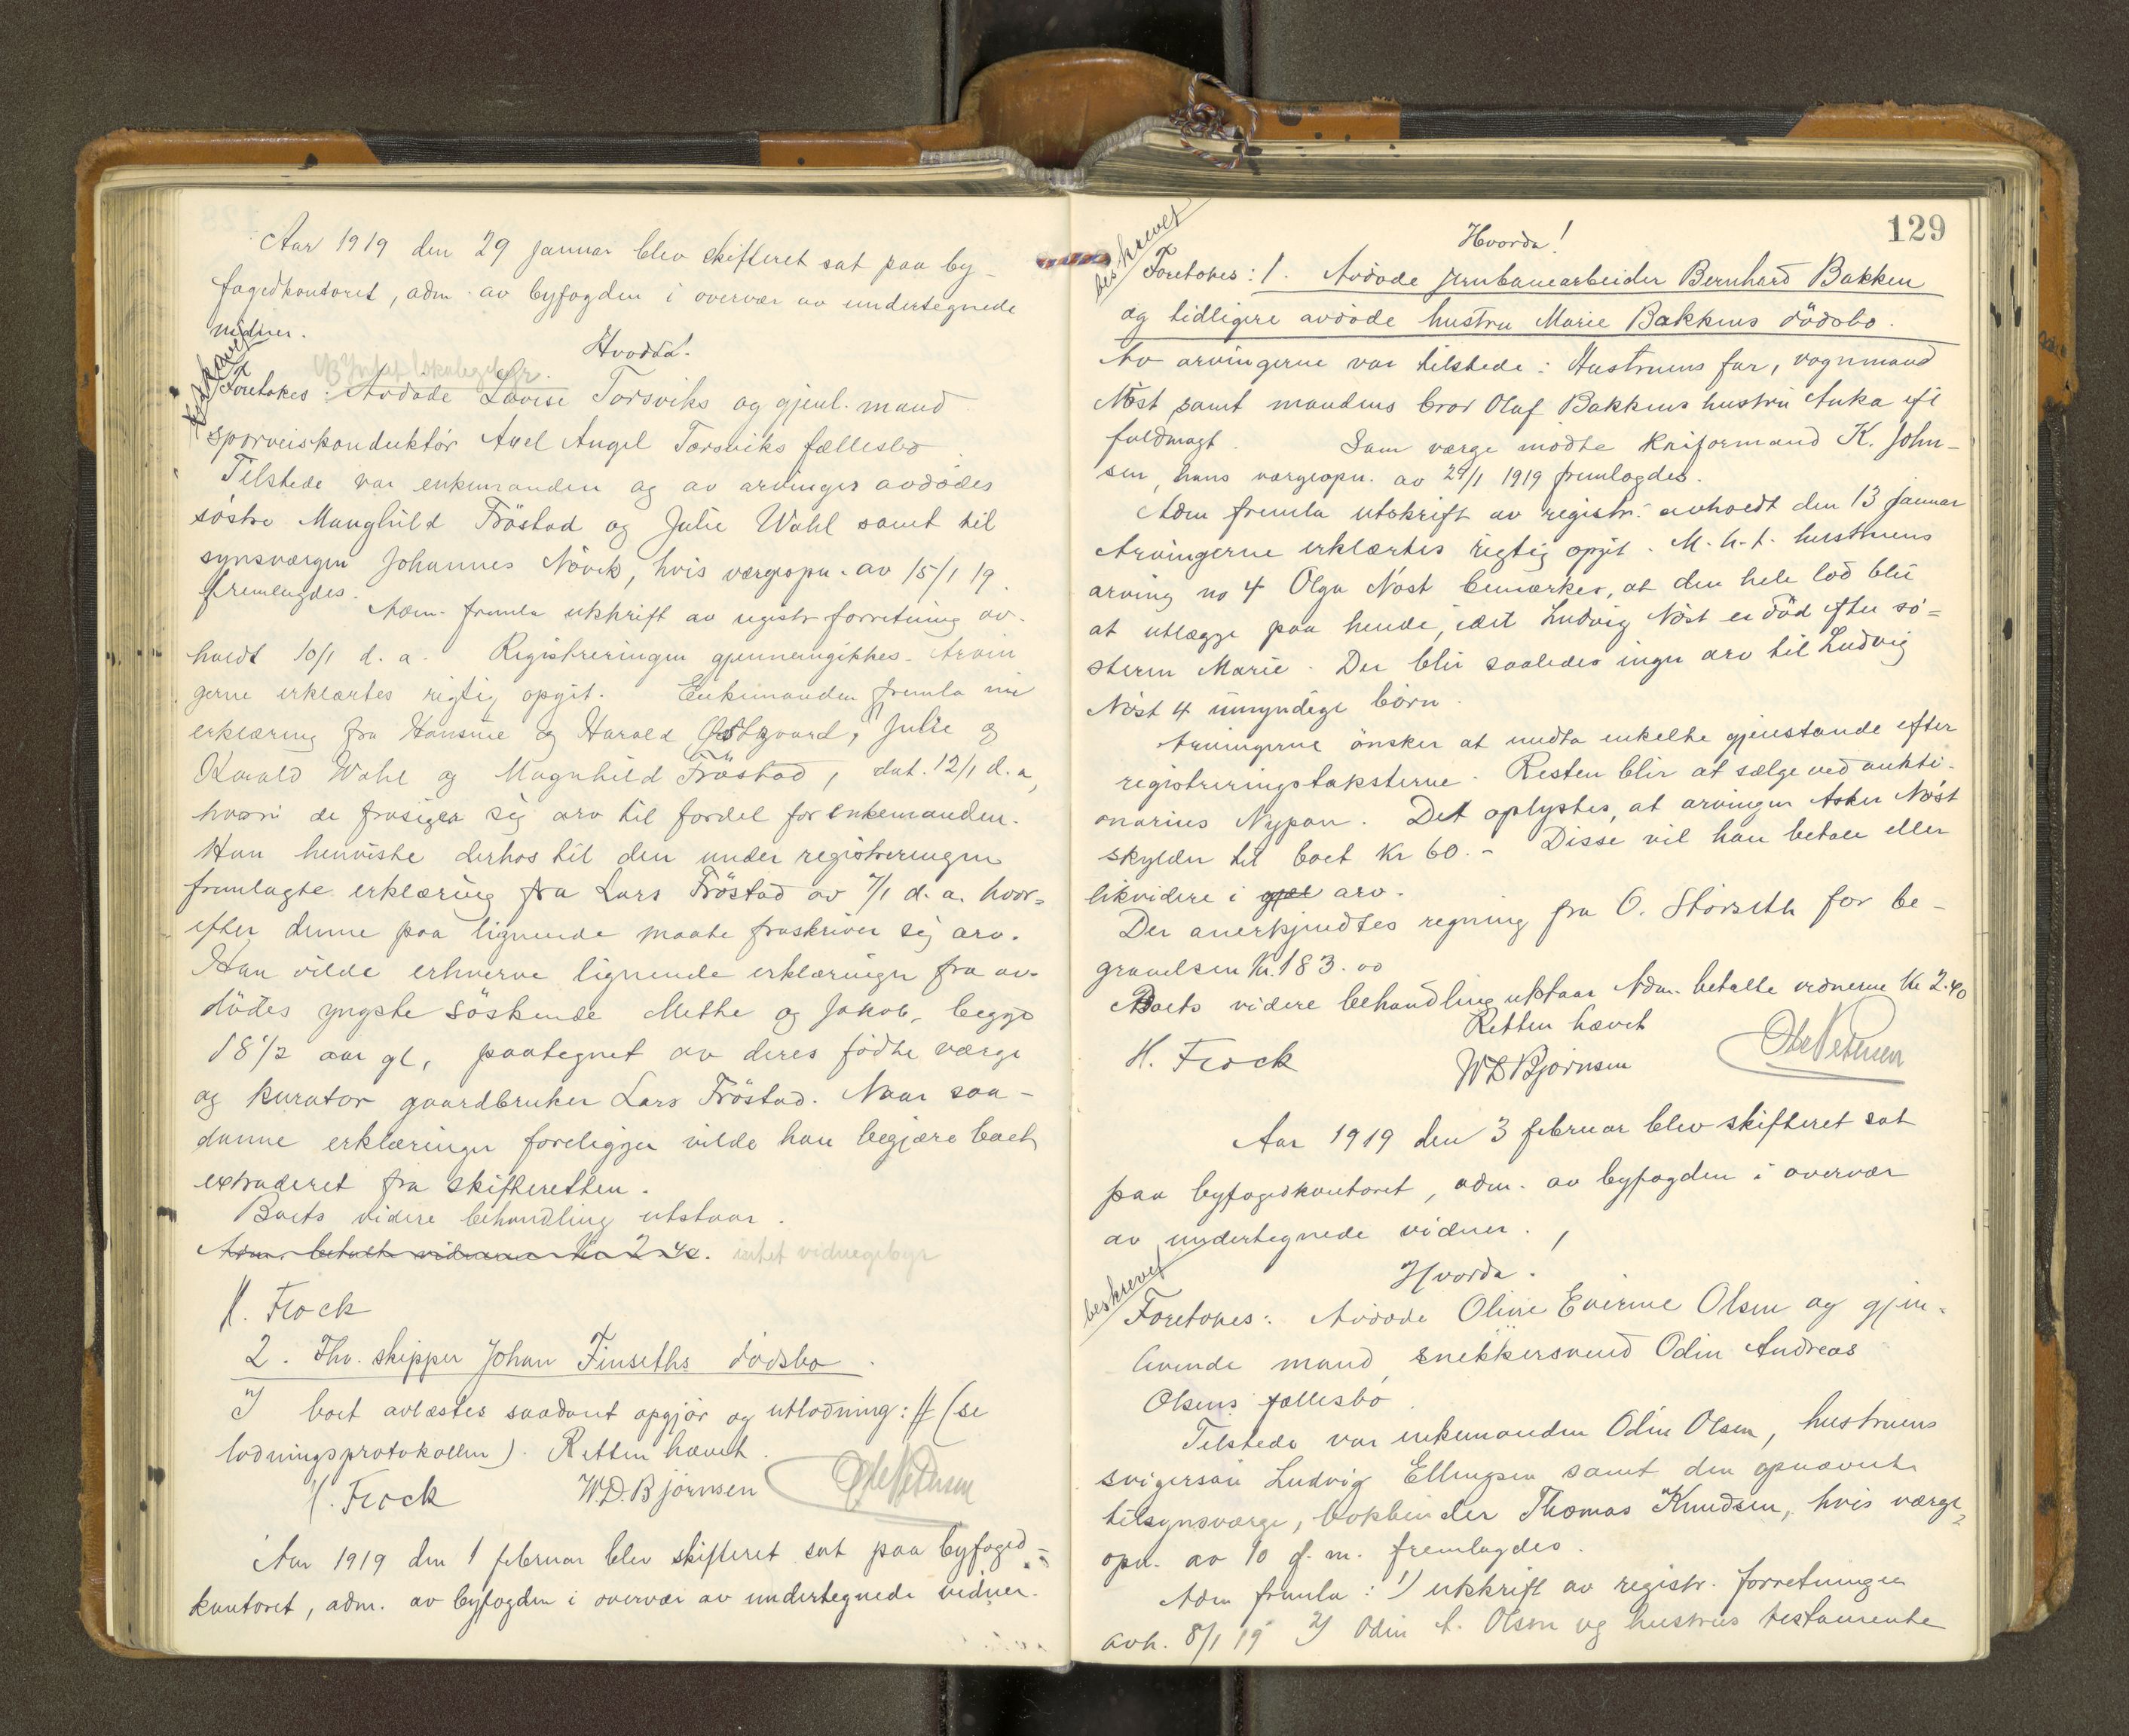 Aar 1919 den 29 januar blev skifteret sat paa by-
fogedkontoret, adm. av byfogden i overvær av undertegnede
vidner.
Hvorda!
beskrevet
Foretokes: Avdøde Lovise Torsviks og gjenl. mand
sporveiskonduktør Axel Angel Torsviks fællesbo
Tilstede var enkemanden og av arvinger avdødes
søstre Manghild Fröstad og Julie Wahl samt til
synsværgen Johannes Növik, hvisværgeopn. av 15/1 19
fremlagdes.
Adm. fremla utskrift av registr forretning av-
holdt 10/1 d. a. Registreringen gjennemgikkes. Arvin
gerne erklærtes rigtig opgit. Enkemanden fremla
erklæring fra Hansine og Harald Østgaard, Julie og
Harald Wahl og Magnhild Fröstad, dat. 12/1 d. a,
hvori de frasiger sig arv til fordel for enkemanden.
Han henviste derhos til den under registreringen
fremlagte erklæring fra Lars Fröstad av 7/1 d. a. hvor-
efter denne paa lignende maate fraskriver sig arv.
Han vilde erhverve lignende erklæringer fra av-
dödes yngste söskende Methe og Jakob, begge
18 1/2 aar gl, paategnet av deres födte værge
og kurator gaardbruker Lars Fröstad. Naar saa-
danne erklæringer foreligger vilde han begjære boet
extraderet fra skifteretten.
Boets videre behandling utstaar.
Adm. betalte vidnerne Kr 2.40. intet vidnegebyr
H. Frock
2. Fhv. skipper Johan Finseths dødsbo.
I boet avlæstes saadant opgjør og utlodning: # (se
lodningsprotokollen). Retten hævet.
H. Frock W.D. Bjørnsen Ole Petersen
Aar 1919 den 1 februar blev skifteret sat paa byfoged-
kontoret, adm. av byfogden i overvær av undertegnede vidner.
129
Hvorda!
beskrevet
Foretokes: 1. Avdøde jernbanearbeider Bernhard Bakken
og tidligere avdøde hustru Marie Bakkens dödsbo.
Av arvingerne var tilstede: Hustruens far, vognmand
Nöst samt mandens bror Olaf Bakkens hustru Anka efl
fuldmagt. Som værge mødte kaiformand K. John-
sen, hans værgeopn. av 29/1 1919 fremlagdes.
Adm fremla utskrift av registr. avholdt den 13 januar
Arvingerne erklærtes rigtig opgit. M. h. t. hustruens
arving no 4 Olga Nöst bemærkes, at den hele lod blir
at utlægge paa hende, idet Ludvig Nöst er død efter sö-
steren Marie. Der blir saaledes ingen arv til Ludvig
Nöst 4 umyndige børn.
Arvingerne ønsker at undta enkelte gjenstande efter
registreringstaksterne. Resten blir at sælge ved aukti-
onarius Nypan. Det oplystes, at arvingen Asker Nöst
skylder til boet Kr 60.- Disse vil han betale eller
likvidere i gjæl arv.
Der anerkjendtes regning fra O. Störseth for be-
gravelsen Kr. 183.00
Boets videre behandling utstaar Adm. betalte vidnerne Kr 2.40
Retten hævet
H. Frock W D Bjørnsen Ole Petersen
Aar 1919 den 3 februar blev skifteret sat
paa byfogedkontoret, adm. av byfogden i overvær
av undertegnede vidner.
Hvorda.
beskrevet
Foretokes: Avdøde Oline Evine Olsen og gjen-
levende mand, snekkersvend Odin Andreas
Olsens fællesbo.
Tilstede var enkemanden Odin Olsen, hustruens
svigersøn Ludvig Ellingsen samt den opnævnte
tilsynsværge, bokbinder Thomas Knudsen, hvis værge-
opn. av 10 f. m. fremlagdes.
Adm fremla: 1) utskrift av registr. forretningen
avh. 8/1 19 2) Odin A. Olsen og hustrus testamente